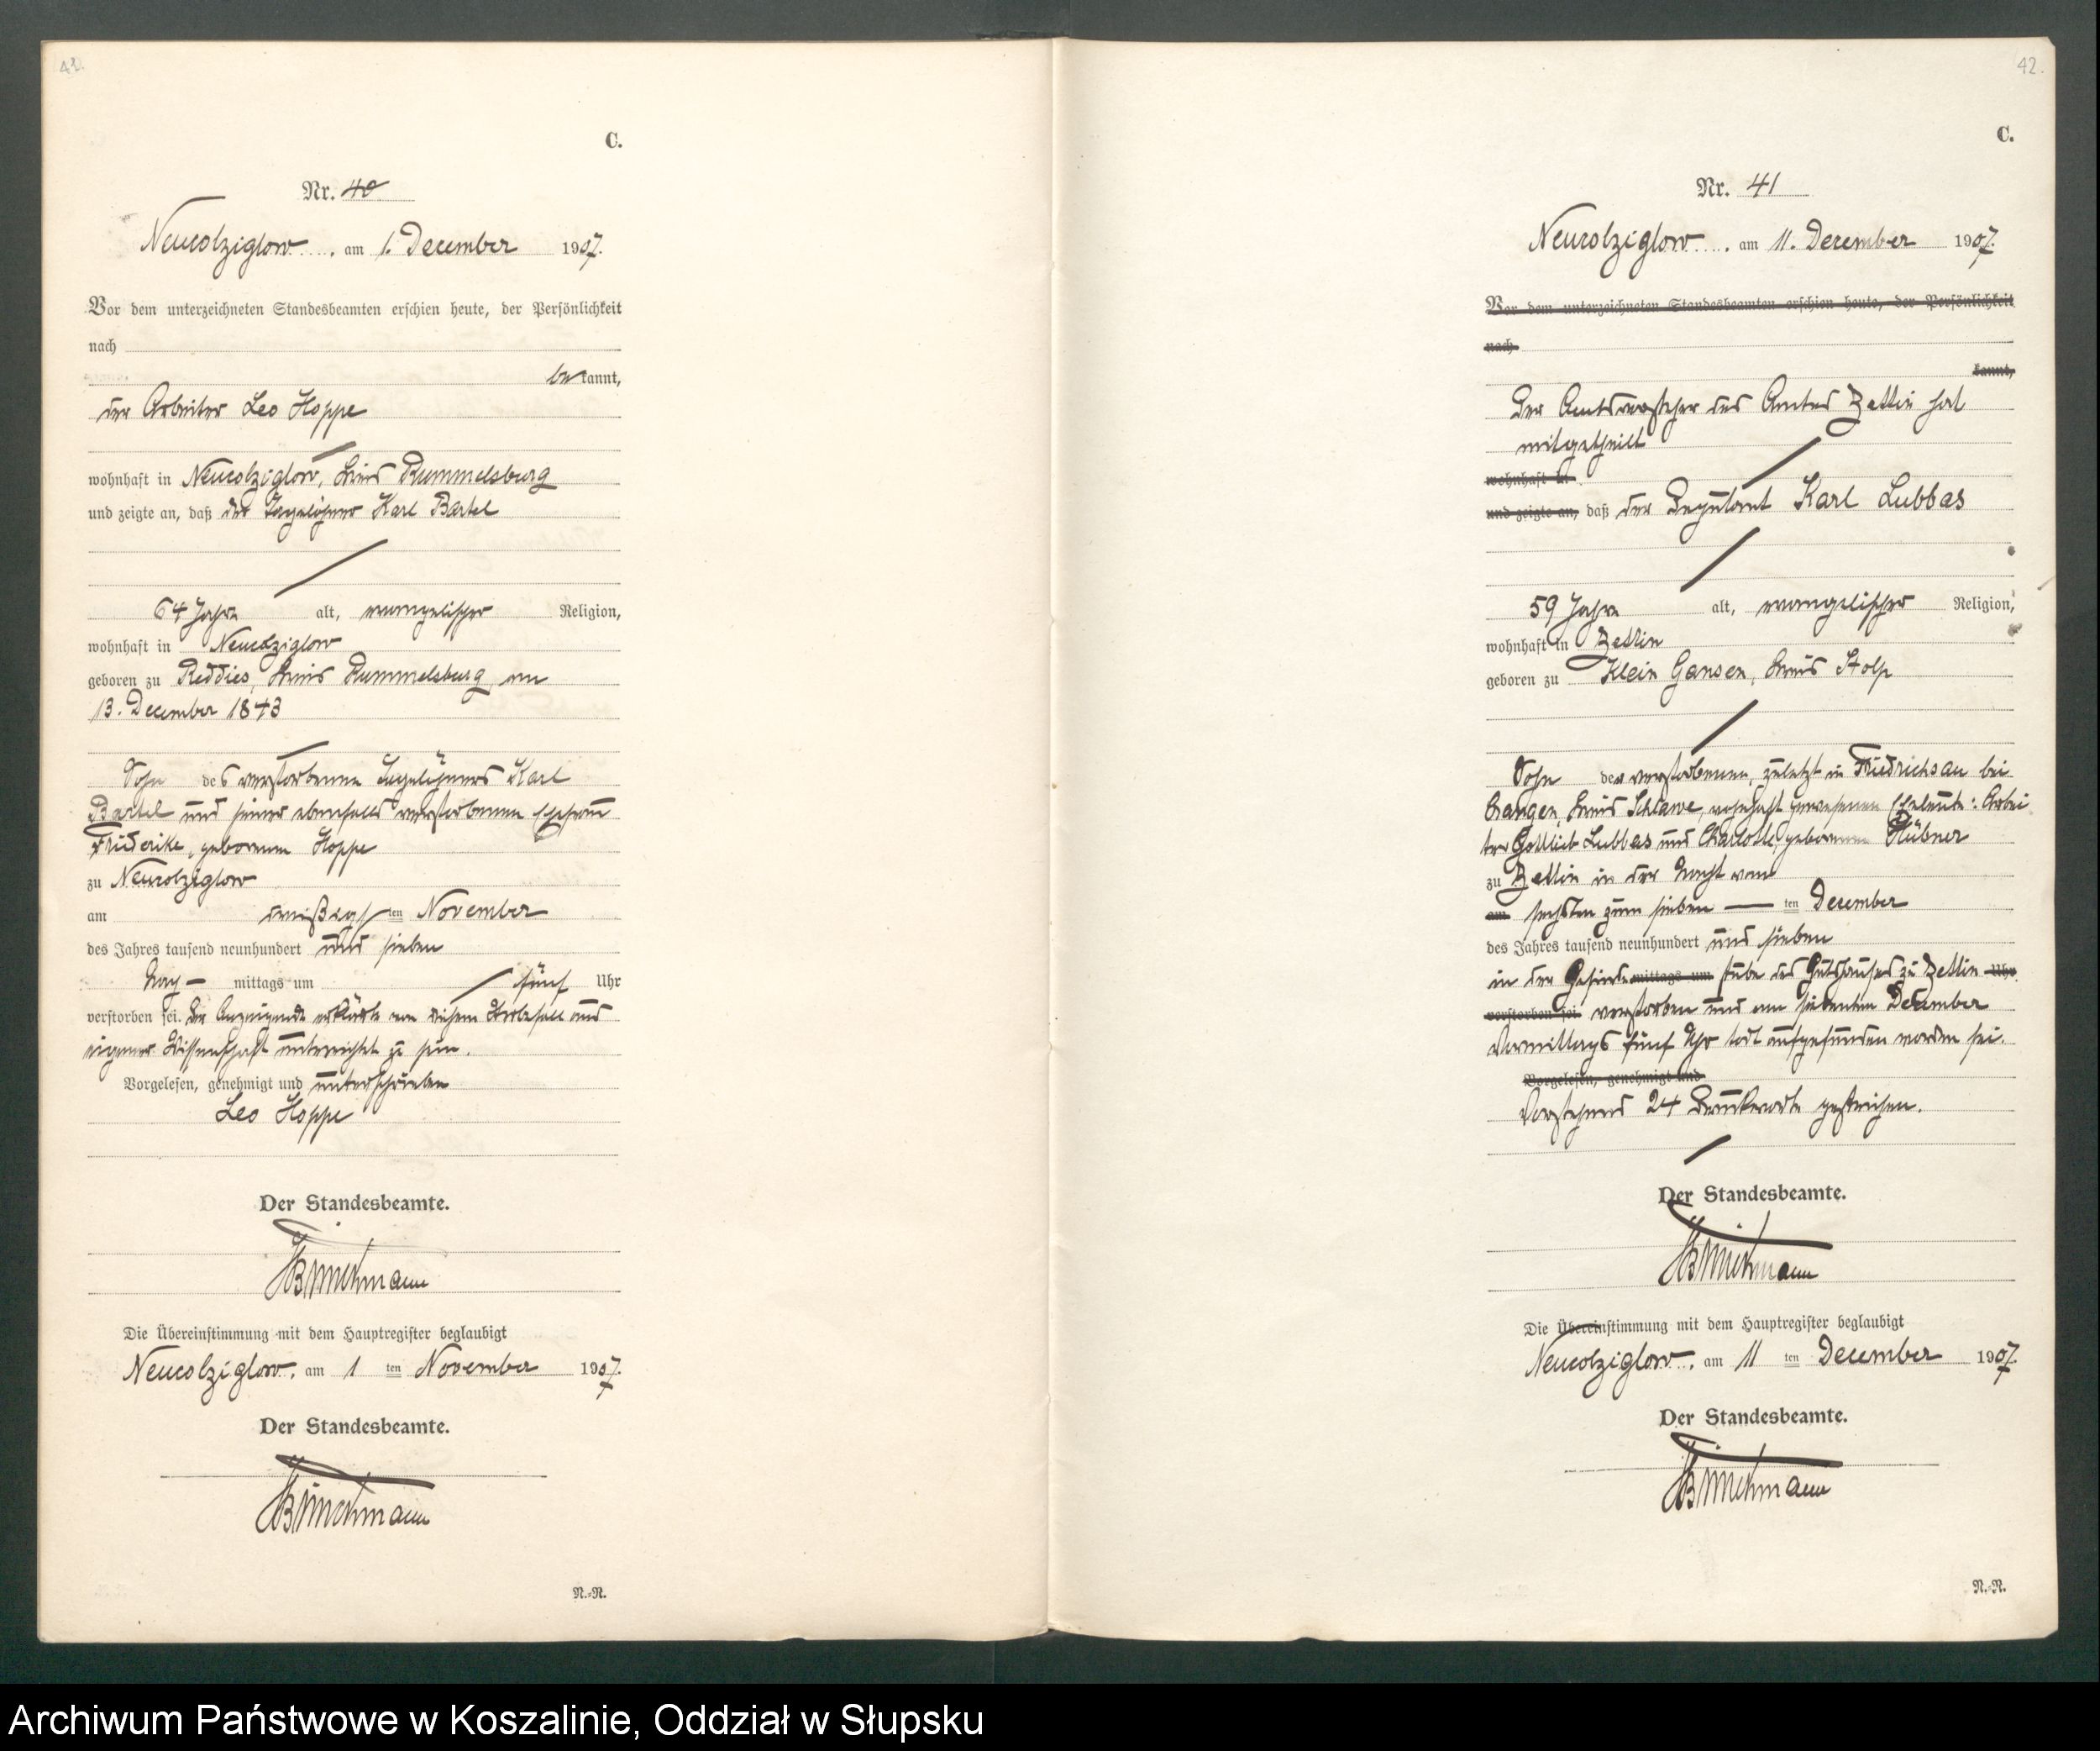 42.
C.
Nr. 40
Neucolziglow, am 1. December 1907.
Vor dem unterzeichneten Standesbeamten erschien heute, der Persönlichkeit
nach
bekannt,
der Arbeiter Leo Hoppe
wohnhaft in Neucolziglow, Kreis Rummelsburg
und zeigte an, daß der Tagelöhner Karl Bartel
64 Jahre alt, evangelischer Religion,
wohnhaft in Neucolziglow
geboren zu Reddies, Kreis Rummelsburg, am
13. December 1843
Sohn des verstorbenen Tagelöhners Karl
Bartel und seiner ebenfalls verstorbenen Ehefrau
Friederike, geborenen Hoppe
zu Neucolziglow
am dreißigsten November
des Jahres tausend neunhundert und sieben
Nach- mittags um fünf Uhr
verstorben sei. Der Anzeigende erklärte von diesem Sterbefall aus
eigener Wissenschaft unterrichtet zu sein.
Vorgelesen, genehmigt und unterschrieben
Leo Hoppe
Der Standesbeamte.
Die Übereinstimmung mit dem Hauptregister beglaubigt
Neucolziglow, am 1 ten November 1907.
Der Standesbeamte.
N.-R.
42.
C.
Nr. 41
Neucolziglow, am 11. December 1907.
Vor dem unterzeichneten Standesbeamten erschien heute, der Persönlichkeit
nach
kannt,
Der Amtsvorsteher des Amtes Zettin hat
mitgetheilt
wohnhaft in
und zeigte an, daß der Deputant Karl Lubbas
59 Jahre alt, evangelischer Religion,
wohnhaft in Zettin
geboren zu Klein Gansen, Kreis Stolp
Sohn der verstorbenen, zuletzt in Friedrichsau bei
Krangen, Kreis Schlawe, wohnhaft gewesenen Eheleute: Arbei
ter Gottlieb Lubbas und Charlotte, geborenen Hübner
zu Zettin in der Nacht vom
am sechsten zum sieben ten December
des Jahres tausend neunhundert und sieben
in der Gesinde mittags um stube des Gutshauses zu Zettin Uhr
verstorben sei verstorben und am siebenten December
Vormittags fünf Uhr todt aufgefunden worden sei.
Vorgelesen, genehmigt und
Vorstehend 24 Druckworte gestrichen.
Der Standesbeamte.
Die Übereinstimmung mit dem Hauptregister beglaubigt
Neucolziglow, am 11 ten December 1907.
Der Standesbeamte.
N.-R.
Archiwum Państwowe w Koszalinie, Oddział w Słupsku